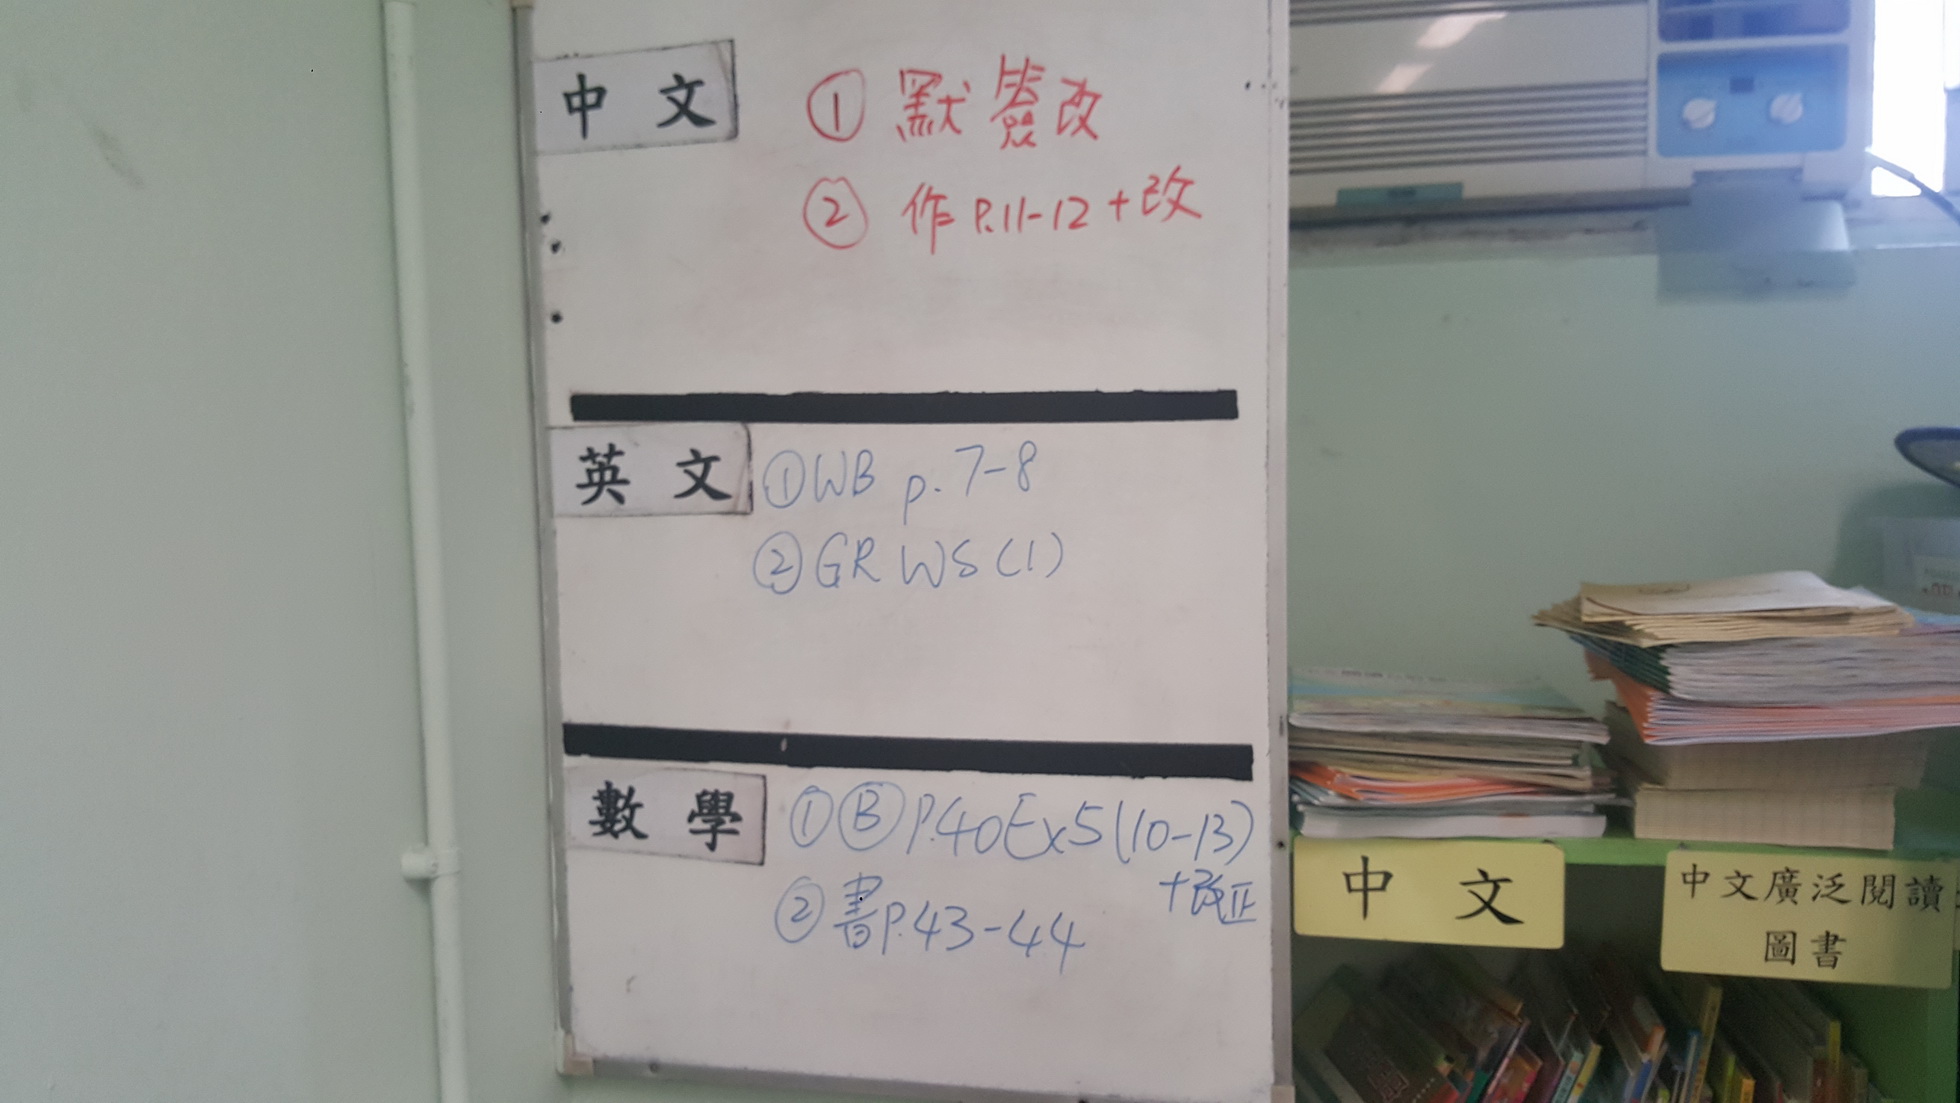 中文
① 默簽改
② 作 P.11-12 + 改
英文
① WB p. 7-8
② GR WS (1)
數學
① Ⓑ P.40 Ex5 (10-13)
+ 改正
② 書 P.43-44
中文
中文廣泛閱讀
圖書